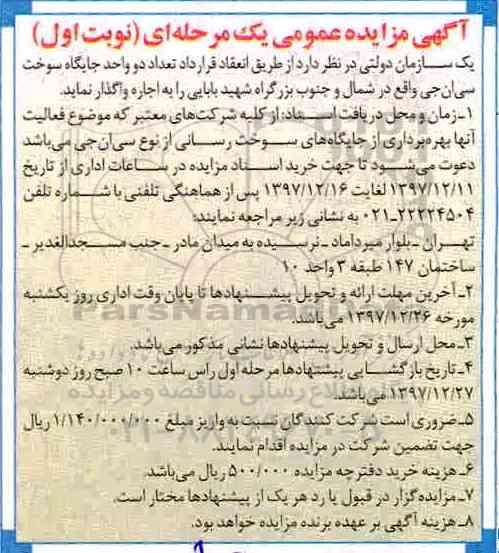 آگهی مزایده عمومی یک مرحله‌ای (نوبت اول)
یک سازمان دولتی در نظر دارد از طریق انعقاد قرارداد تعداد دو واحد جایگاه سوخت
سی‌ان‌جی واقع در شمال و جنوب بزرگراه شهید بابایی را به اجاره واگذار نماید.
۱ـ زمان و محل دریافت اسناد: از کلیه شرکت‌های معتبر که موضوع فعالیت
آنها بهره‌برداری از جایگاه‌های سوخت رسانی از نوع سی‌ان‌جی می‌باشد
دعوت می‌شود تا جهت خرید اسناد مزایده در ساعات اداری از تاریخ
۱۳۹۷/۱۲/۱۱ لغایت ۱۳۹۷/۱۲/۱۶ پس از هماهنگی تلفنی با شماره تلفن
۰۲۱-۲۲۲۲۴۵۰۴ به نشانی زیر مراجعه نمایند:
تهران ـ بلوار میرداماد ـ نرسیده به میدان مادر ـ جنب مسجدالغدیر ـ
ساختمان ۱۴۷ طبقه ۳ واحد ۱۰
۲ـ آخرین مهلت ارائه و تحویل پیشنهادها تا پایان وقت اداری روز یکشنبه
مورخه ۱۳۹۷/۱۲/۲۶ می‌باشد.
۳ـ محل ارسال و تحویل پیشنهادها نشانی مذکور می‌باشد.
۴ـ تاریخ بازگشایی پیشنهادها مرحله اول راس ساعت ۱۰ صبح روز دوشنبه
۱۳۹۷/۱۲/۲۷ می‌باشد.
۵ـ ضروری است شرکت کنندگان نسبت به واریز مبلغ ۱/۱۴۰/۰۰۰/۰۰۰ ریال
جهت تضمین شرکت در مزایده اقدام نمایند.
۶ـ هزینه خرید دفترچه مزایده ۵۰۰/۰۰۰ ریال می‌باشد.
۷ـ مزایده‌گزار در قبول یا رد هر یک از پیشنهادها مختار است.
۸ـ هزینه آگهی بر عهده برنده مزایده خواهد بود.